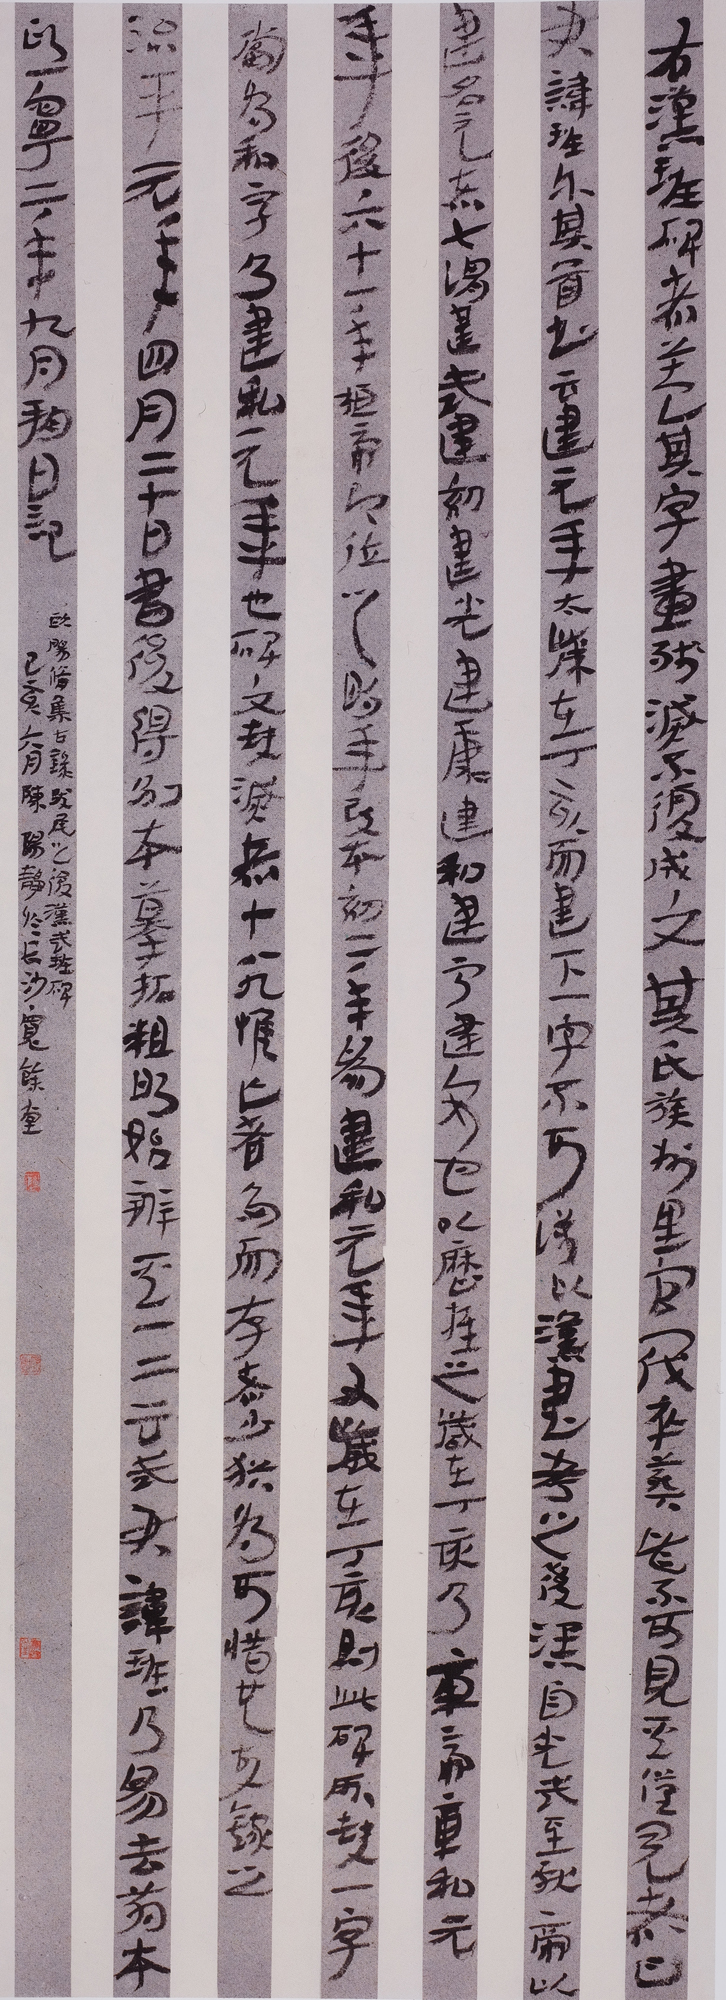 右漢班碑者蓋其字畫殘滅不復成文其氏族州里官閥卒葬皆不可見其僅見者曰
君諱班尔其首書云建元年太歲在丁亥而建下一字不可識以漢書考之後漢自光武至獻帝以
建名元者七謂建武建初建光建康建和建寧建安也以歷推之歲在丁亥乃章帝章和元
年後六十一年桓帝即位之明年改本初二年為建和元年又歲在丁亥則此碑所缺一字
當為和字乃建和元年也碑文缺滅者十八九惟亡者多而存者少猶為可惜也故錄之
治平元年四月二十日書後得別本摹拓粗明始辨其一二云武君諱班乃易去前本
熙寧二年九月朔日記
歐陽脩集古錄跋尾之後漢武班碑
己亥六月陳陽靜於長沙寬餘堂